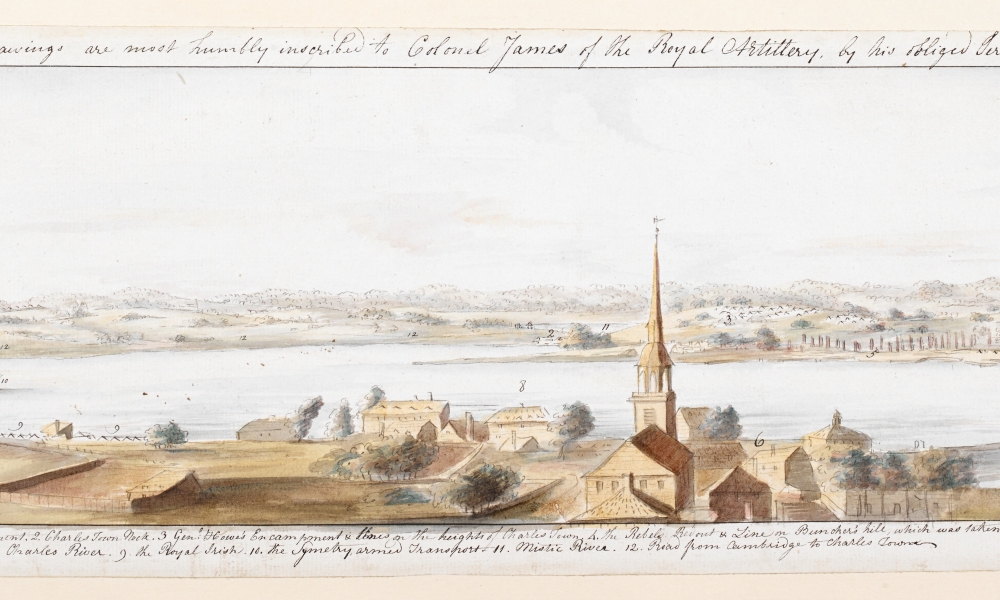 awings are most humbly inscribed to Colonel James of the Royal Artillery, by his obliged Ser
12
12
2
11
3
12
5
10
8
9
9
6
ent. 2. Charles Town Neck. 3 Genl. Howe's Encampment & lines on the heights of Charles Town 4. the Rebels Redout & Line on Buncher's hill, which was taken
Charles River. 9. the Royal Irish. 10. the Symetry armed Transport 11. Mistic River. 12. Road from Cambridge to Charles Town